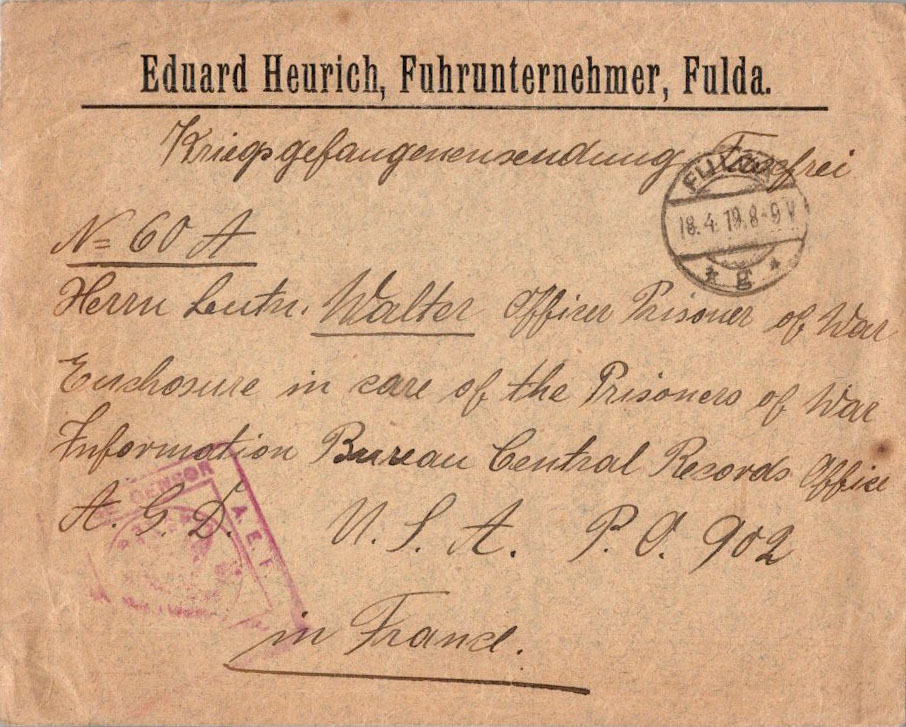 Eduard Heurich, Fuhrunternehmer, Fulda.
Kriegsgefangenensendung, Taxfrei
FULDA
18.4.19.8-9V
* g *
N= 60 A
Herrn Leutn. Walter Officer Prisoner of War
Enchosure in care of the Prisoners of War
Information Bureau Central Records Office
A. G. D. U. S. A. P. O. 902
CENSOR
A. E. F.
in France.